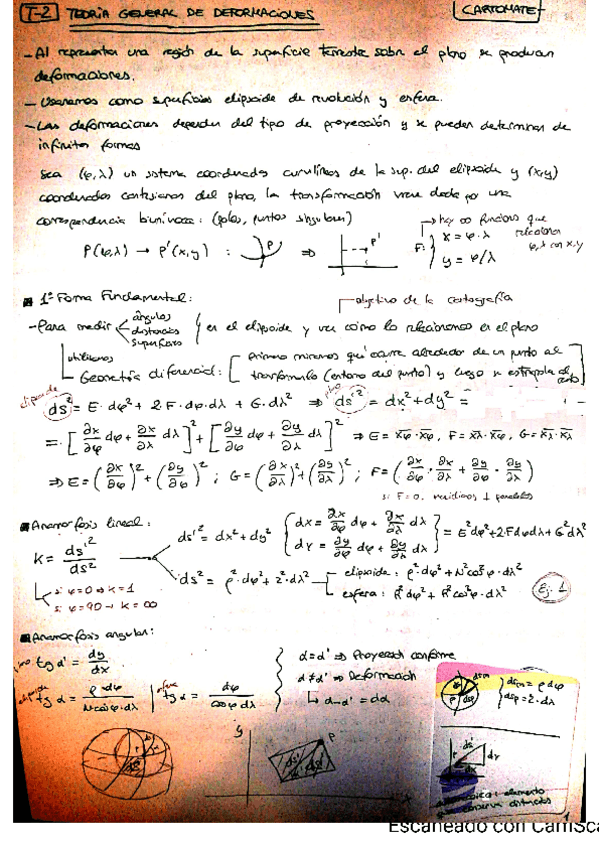 T-2 TEORÍA GENERAL DE DEFORMACIONES
- Al representar una región de la superficie terrestre sobre el plano se producen
deformaciones.
- Usaremos como superficies elipsoide de revolución y esfera.
- Las deformaciones dependen del tipo de proyección y se pueden determinar de
infinitas formas
Sea (φ,λ) un sistema coordenadas curvilíneas de la sup. del elipsoide y (x,y)
coordenadas cartesianas del plano, la transformación viene dada por una
correspondencia biunívoca: (polos, puntos singulares)
hay ∞ funciones que
relacionan
φ,λ con x,y
P(φ,λ) → P'(x,y) : P ⇒ P' F: { x = φ·λ
y = φ/λ
1ª Forma Fundamental:
objetivo de la cartografía
- Para medir ángulos
distancias
superficies
en el elipsoide y ver cómo lo relacionamos en el plano
utilizamos
Geometría diferencial: [ primero miramos qué ocurre alrededor de un punto al
transformarlo (entorno del punto) y luego se extrapola al resto
elipsoide
plano
ds² = E·dφ² + 2·F·dφ·dλ + G·dλ² ⇒ ds'² = dx² + dy² =
= [∂x/∂φ dφ + ∂x/∂λ dλ]² + [∂y/∂φ dφ + ∂y/∂λ dλ]² ⇒ E = x̄φ·x̄φ, F = x̄λ·x̄φ, G = x̄λ·x̄λ
⇒ E = (∂x/∂φ)² + (∂y/∂φ)² ; G = (∂x/∂λ)² + (∂y/∂λ)² ; F = (∂x/∂φ · ∂x/∂λ + ∂y/∂φ · ∂y/∂λ)
si F=0, meridianos ⊥ paralelos
Anamorfosis lineal:
K = ds'²/ds²
ds'² = dx² + dy² { dx = ∂x/∂φ dφ + ∂x/∂λ dλ
dy = ∂y/∂φ dφ + ∂y/∂λ dλ } = E²dφ² + 2·Fdφdλ + G²dλ²
ds² = ρ²·dφ² + r²·dλ²
elipsoide: ρ²·dφ² + N²cos²φ·dλ²
esfera: R²dφ² + R²cos²φ·dλ²
Ej. 1
si φ=0 ⇒ K=1
si φ=90 → K=∞
Anamorfosis angular:
tg α' = dy/dx
tg α = ρ·dφ/Ncosφ·dλ
tg α = dφ/cosφ dλ
α=α' ⇒ Proyección conforme
α≠α' ⇒ Deformación
α-α' = dα
dsm = ρ dφ
dsp = r·dλ
y
P
ds'
dy
: elemento
conserva distancias
1
Escaneado con CamSca